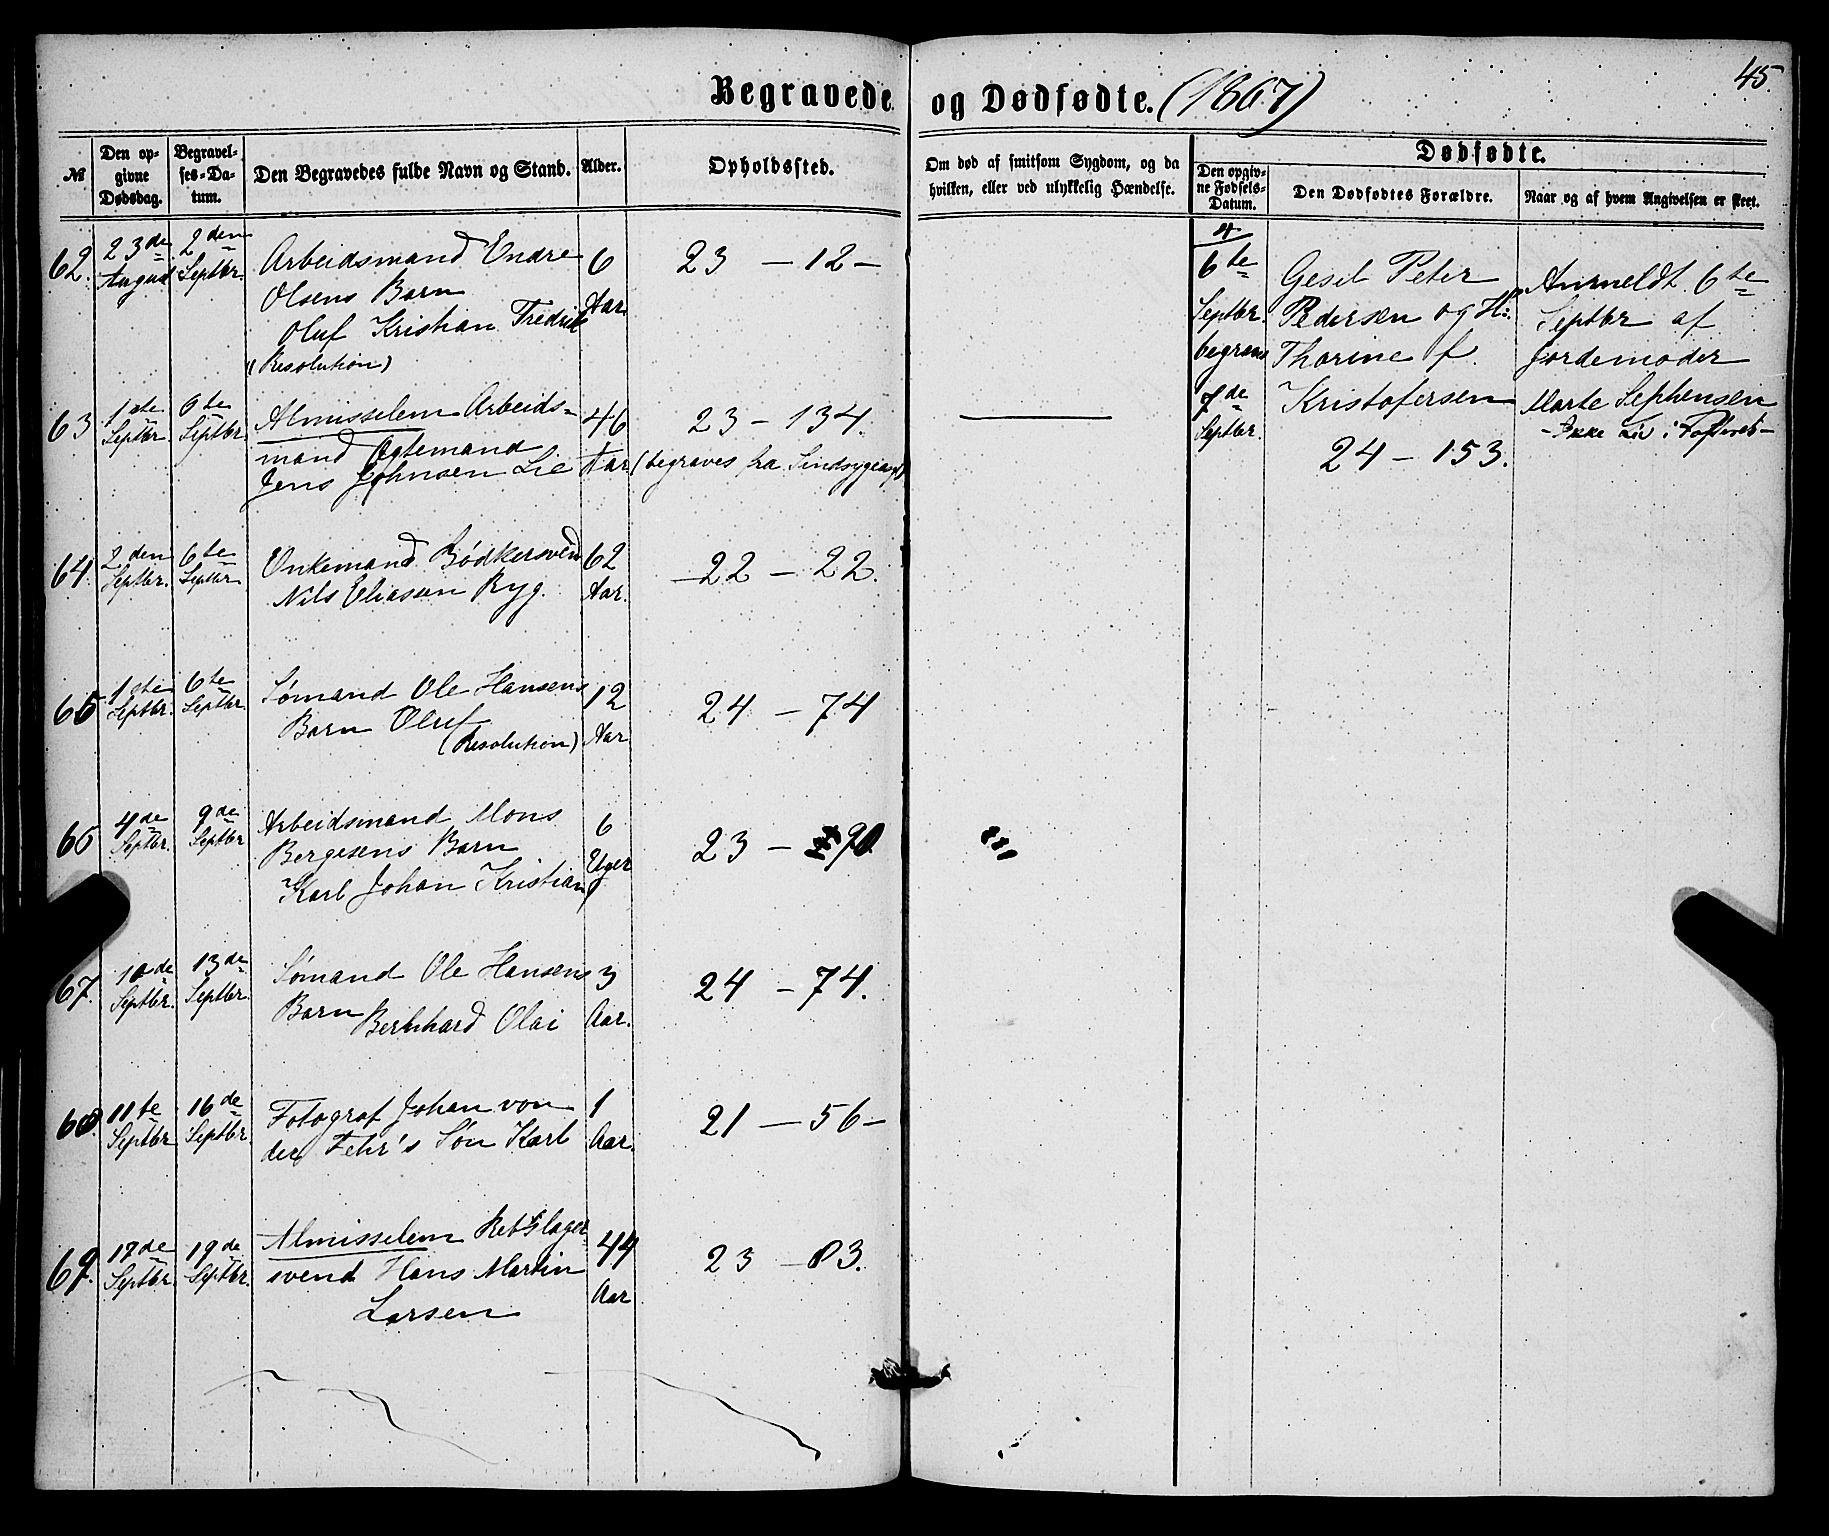 45.
Begravede og Dødfødte. (1867)
№
Den opgivne Dødsdag.
Begravelses-Datum.
Den Begravedes fulde Navn og Stand.
Alder.
Opholdssted.
Om død af smitsom Sygdom, og da hvilken, eller ved ulykkelig Hændelse.
Dødfødte.
Den opgivne Fødsels-Datum.
Den Dødfødtes Forældre.
Naar og af hvem Angivelsen er skeet.
62. 23de August 2den Septbr. Arbeidsmand Endre 6 Aar 23 – 12 –
Olsens Barn
Oluf Kristian Fredrik
(Resolution)
63 1ste Septbr. 6te Septbr. Almisselem Arbeids= 46 Aar 23 – 134.
mand Ægtemand
Jens Johnsen Lie (begraves fra Sindsygeasyl)
64. 2den Septbr. 6te Septbr. Enkemand Bødkersvend 62 Aar. 22 – 22.
Nils Eliasen Ryg.
65 1ste Septbr. 6te Septbr. Sømand Ole Hansens 12 Aar 24 – 74
Barn Oluf
(Resolution)
66 4de Septbr. 9de Septbr Arbeidsmand Mons 6 Uger 23 – 90.
Bergesens Barn
Karl Johan Kristian
67. 10de Septbr. 13de Septbr. Sømand Ole Hansens 3 Aar. 24 – 74.
Barn Bernhard Olai
68. 11te Septbr 16de Septbr. Fotograf Johan von 1 Aar. 21 – 56 –
der Fehr's Søn Karl
69. 17de Septbr. 19de Septbr. Almisselem Rebslager 44 Aar 23 – 83.
svend Hans Martin
Larsen
4
6te Septbr. begraves 7de Septbr.
Gesel Peter
Pedersen og H:
Thorine f.
Kristofersen
24 – 153.
Anmeldt 6te
Septbr af
Jordemoder
Marte Sephensen
– Ikke Liv i Fosteret –